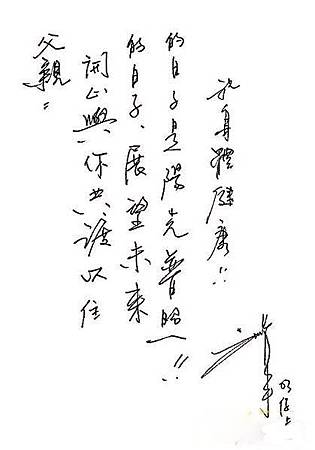 父親：
開心與你共渡以往
的日子、展望未來
的日子是陽光普照！！
祝身體健康！！
上